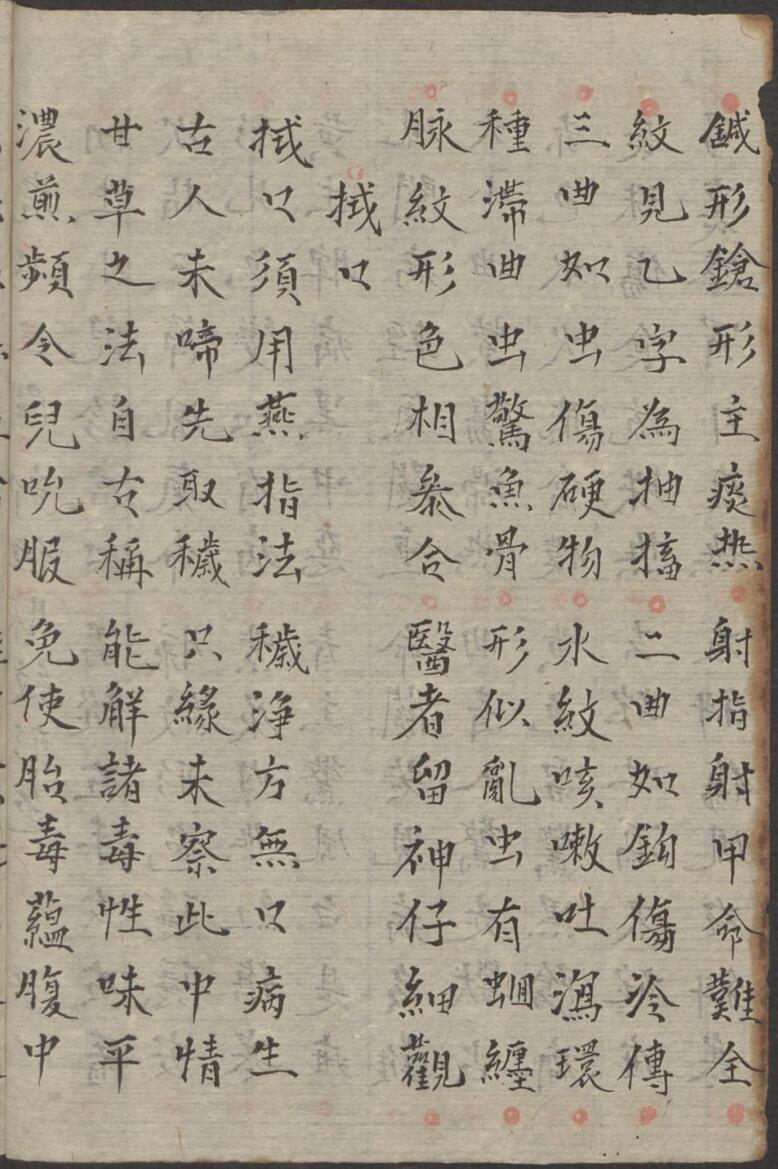 鍼形鎗形主痰热射指射甲命難全
紋見乙字為抽搐二曲如鈎傷冷傳
三曲如虫傷硬物水紋咳嗽吐瀉環
種滯曲虫驚魚骨形似亂虫有蛔纏
脉紋形色相叅合醫者留神仔細觀
拭口
拭口須用燕指法穢淨方無口病生
古人未啼先取穢只緣未察此中情
甘草之法自古稱能解諸毒性味平
濃煎頻令兒吮服免使胎毒蘊腹中